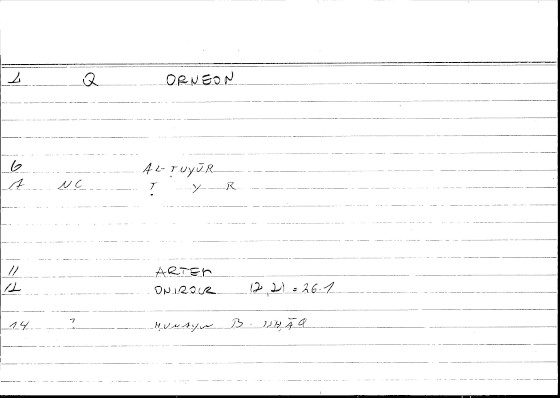 1 Q ORNEON
6 AL-ṬUYŪR
A NC Ṭ Y R
11 ARTEM
12 ONIROCR 26.1
14 ? ḤUNAYN B. ISḤĀQ